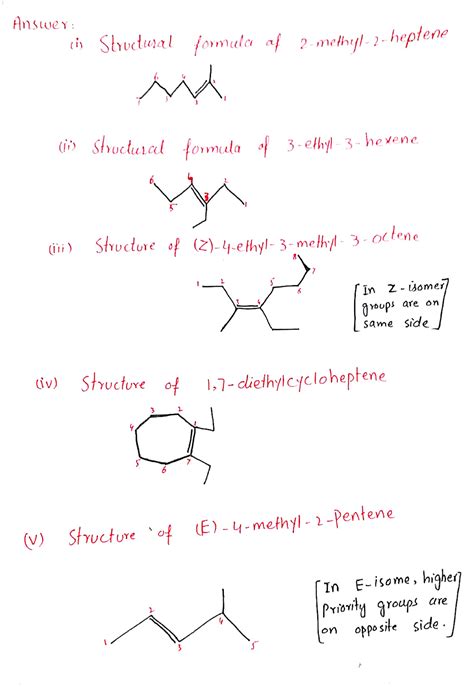 Answer:
(i) Structural formula of 2-methyl-2-heptene
7 6 5 4 3 2 1
(ii) Structural formula of 3-ethyl-3-hexene
6 5 4 3 2 1
(iii) Structure of (Z)-4-ethyl-3-methyl-3-octene
1 2 3 4 5 6 7 8
[In Z-isomer
groups are on
same side]
(iv) Structure of 1,7-diethylcycloheptene
1 2 3 4 5 6 7
(v) Structure of (E)-4-methyl-2-pentene
1 2 3 4 5
[In E-isome, higher
Priority groups are
on opposite side.]